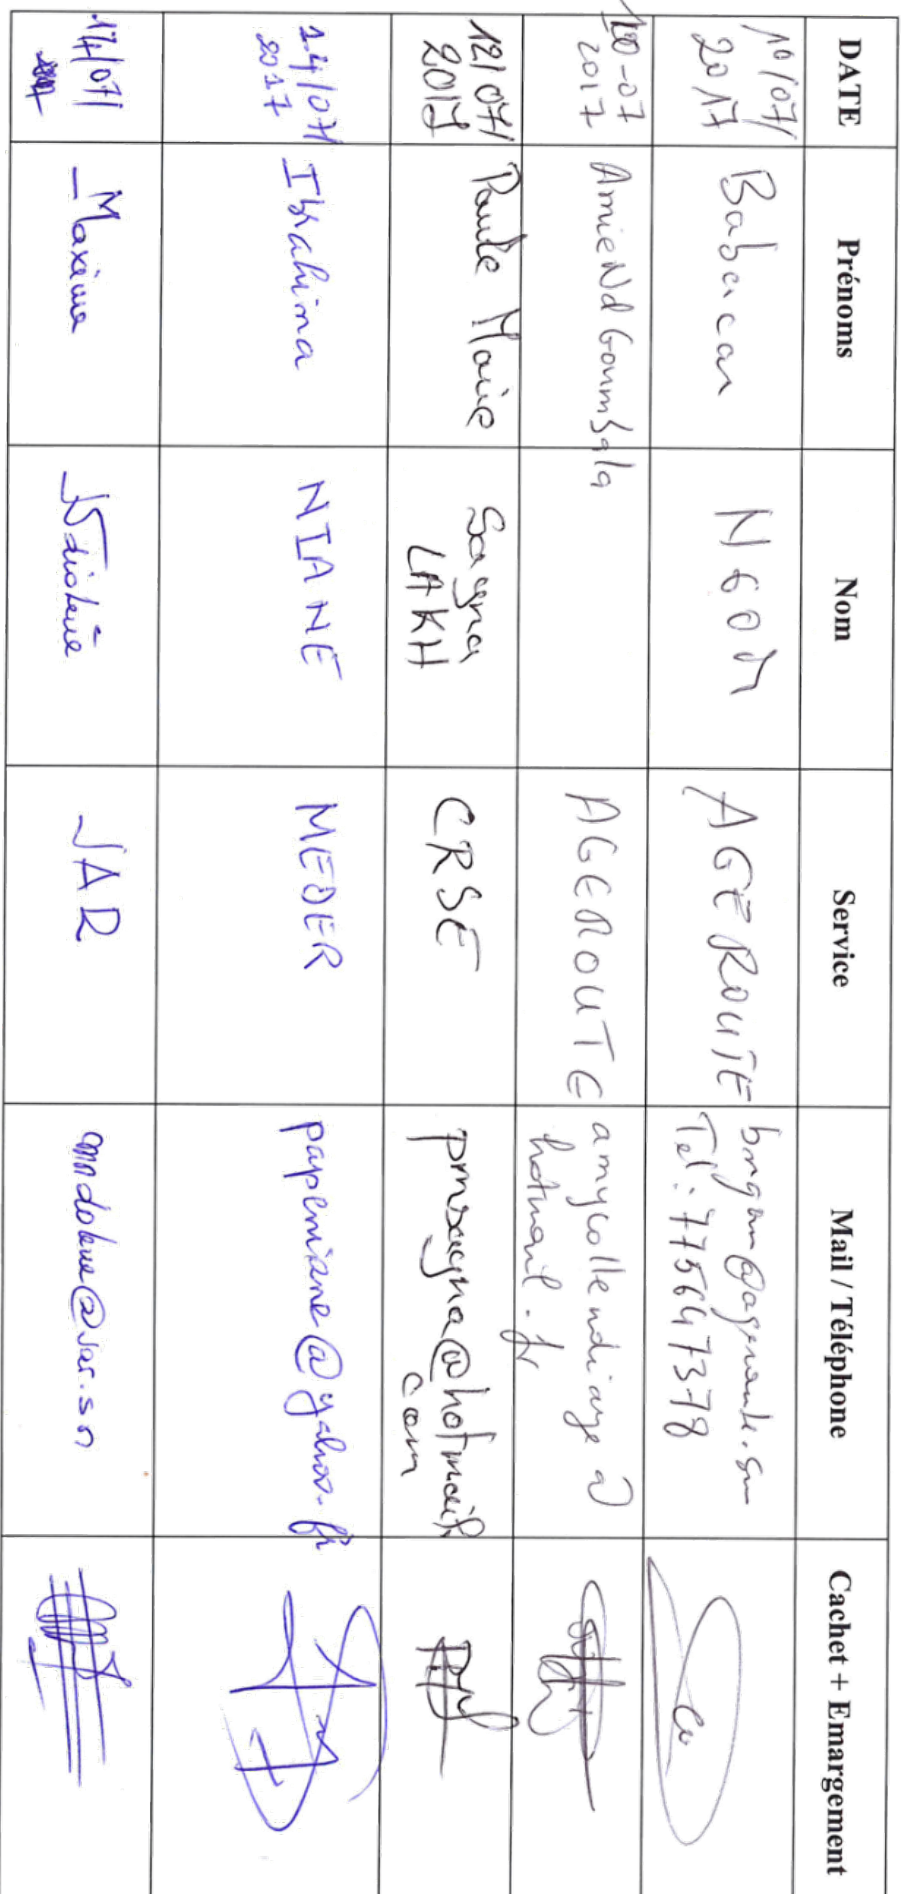 DATE
Prénoms
Nom
Service
Mail / Téléphone
Cachet + Emargement
10/07/
2017
Babacar
NGOM
AGEROUTE
bngom@ageroute.sn
Tel: 775647378
10-07
2017
Amie Nd Goumbala
AGEROUTE
amycollendiaye@
hotmail.fr
12/07/
2017
Paule Marie
Sagna
LAKH
CRSE
pmsagna@hotmail.
com
14/07/
2017
Ibrahima
NIANE
MEDER
papeniane@yahoo.fr
17/07/
Maxime
SAR